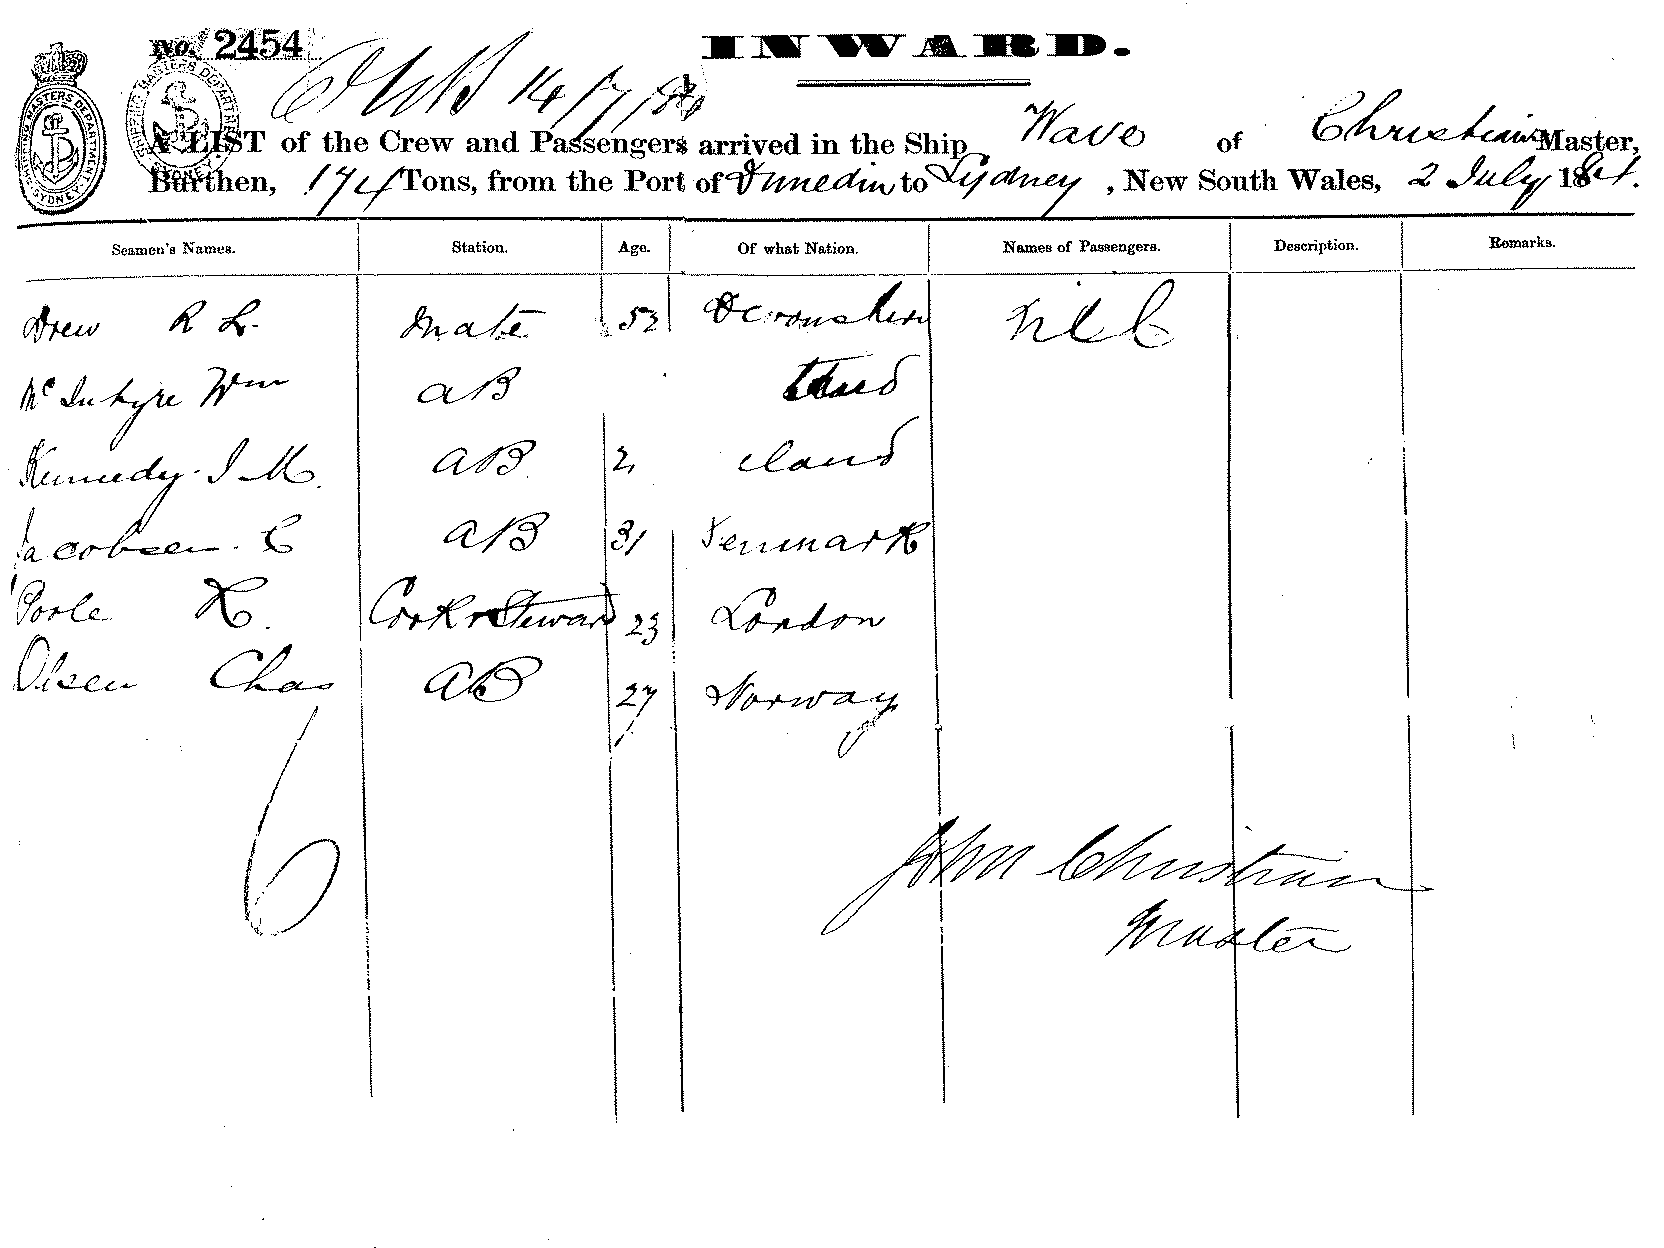 No. 2454
INWARD.
14/7/84
A LIST of the Crew and Passengers arrived in the Ship Wave of Christian Master,
Burthen, 174 Tons, from the Port of Dunedin to Sydney, New South Wales, 2 July 1884.
SHIPPING MASTERS DEPARTMENT SYDNEY
Seamen's Names. Station. Age. Of what Nation. Names of Passengers. Description. Remarks.
Drew R L. Mate 52 Devonshire Nil
Mc Intyre Wm AB
Kennedy J M. AB 2
Jacobsen. C AB 31 Denmark
Poole H. Cook & Steward 23 London
Olsen Chas AB 27 Norway
6
John Christian
Master